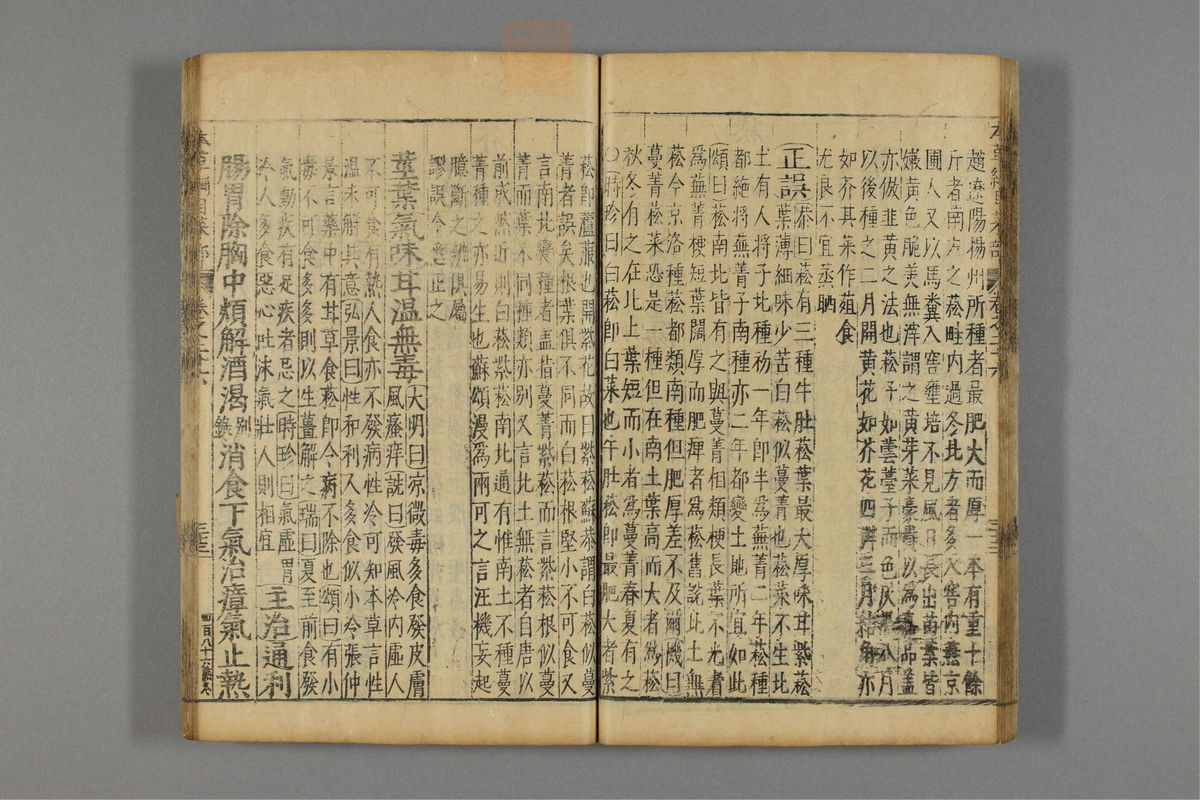 趙遼陽揚州所種者最肥大而厚一本有重十餘
斤者南方之菘畦內過冬北方者多入窖內燕京
圃人又以馬糞入窖壅培不見風日長出苗葉皆
嫩黃色脆美無滓謂之黃芽菜豪貴以爲品蓋
亦倣韭黃之法也菘子如蕓薹子而色灰黑八月
以後種之二月開黃花如芥花四瓣三月結角亦
如芥其菜作葅食
尤良不宜蒸晒
正誤恭曰菘有三種牛肚菘葉最大厚味甘紫菘
葉薄細味少苦白菘似蔓菁也菘菜不生北
土有人將子北種初一年卽半爲蕪菁二年菘種
都絶將蕪菁子南種亦二年都變土地所宜如此
頌曰菘南北皆有之與蔓菁相類梗長葉不光者
爲蕪菁梗短葉闊厚而肥痺者爲菘舊說北土無
菘今京洛種菘都類南種但肥厚差不及爾機曰
蔓菁菘菜恐是一種但在南土葉高而大者爲菘
秋冬有之在北土葉短而小者爲蔓菁春夏有之
○時珍曰白菘卽白菜也牛肚菘卽最肥大者紫
菘卽蘆菔也開紫花故曰紫菘蘇恭謂白菘似蔓
菁者誤矣根葉俱不同而白菘根堅小不可食又
言南北變種者蓋指蔓菁紫菘而言紫菘根似蔓
菁而葉不同種類亦別又言北土無菘者自唐以
前或然近則白菘紫菘南北通有惟南土不種蔓
菁種之亦易生也蘇頌漫爲兩可之言汪機妄起
臆斷之辨俱屬
謬誤今悉正之
莖葉氣味甘溫無毒大明曰涼微毒多食發皮膚
風瘙痒詵曰發風冷內虛人
不可食有熱人食亦不發病性冷可知本草言性
溫未解其意弘景曰性和利人多食似小冷張仲
景言藥中有甘草食菘卽令病不除也頌曰有小
毒不可食多多則以生薑解之瑞曰夏至前食發
氣動疾有足疾者忌之時珍曰氣虛胃
冷人多食惡心吐沫氣壯人則相宜主治通利
腸胃除胸中煩解酒渴別錄消食下氣治瘴氣止熱